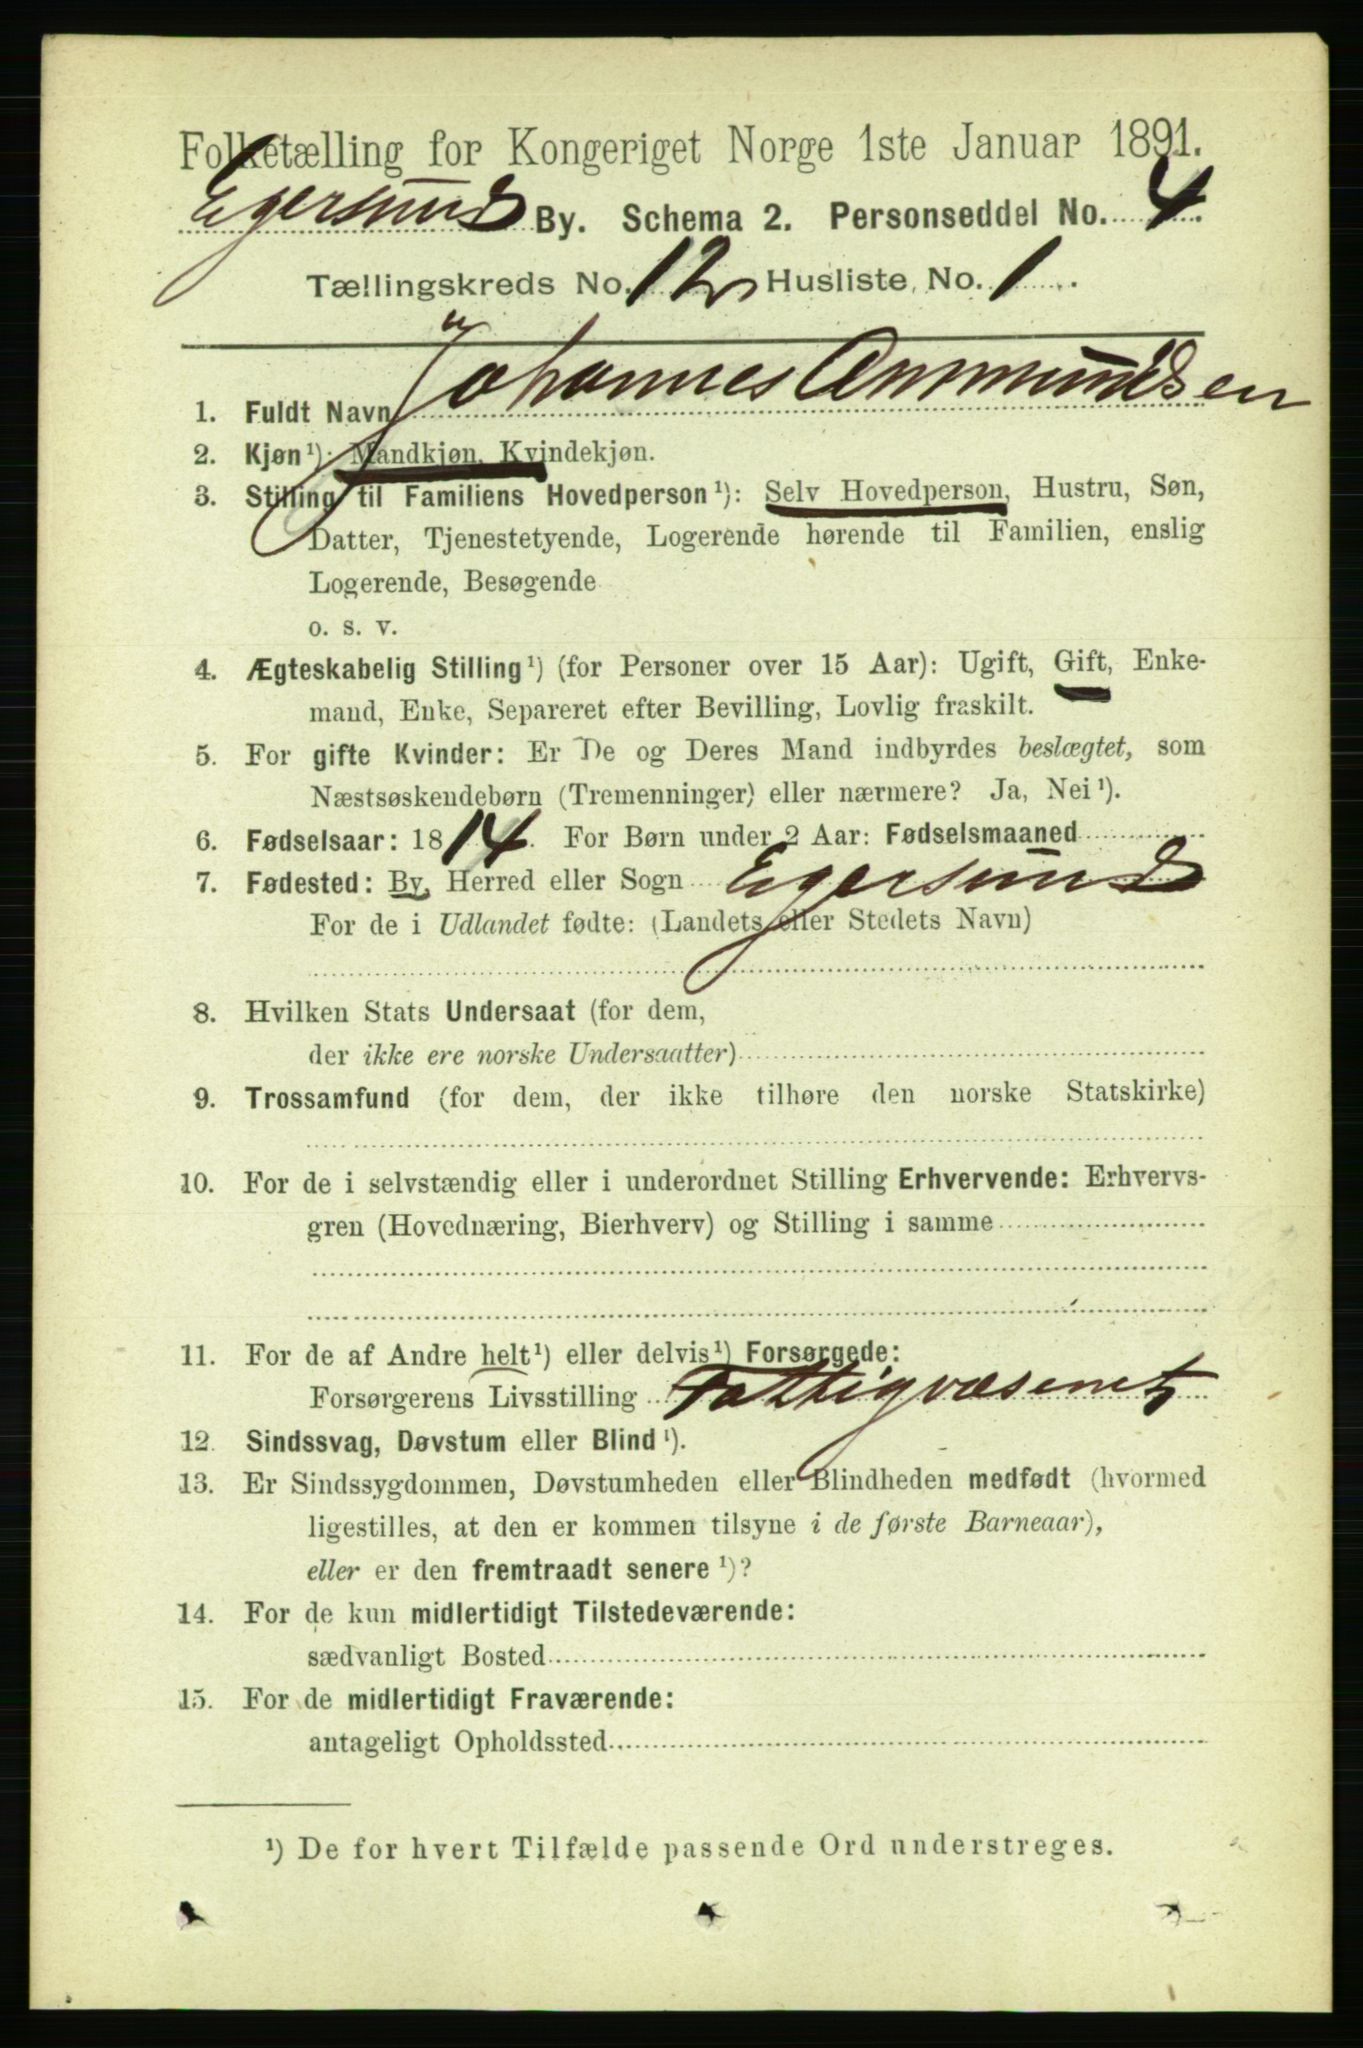 Folketælling for Kongeriget Norge 1ste Januar 1891.
Egersund By. Schema 2. Personseddel No. 4.
Tællingskreds No. 12 Husliste No. 1.
1. Fuldt Navn Johannes Ommundsen
2. Kjøn¹): Mandkjøn, Kvindekjøn.
3. Stilling til Familiens Hovedperson¹): Selv Hovedperson, Hustru, Søn,
Datter, Tjenestetyende, Logerende hørende til Familien, enslig
Logerende, Besøgende
o. s. v.
4. Ægteskabelig Stilling¹) (for Personer over 15 Aar): Ugift, Gift, Enke-
mand, Enke, Separeret efter Bevilling, Lovlig fraskilt.
5. For gifte Kvinder: Er De og Deres Mand indbyrdes beslægtet, som
Næstsøskendebørn (Tremenninger) eller nærmere? Ja, Nei¹).
6. Fødselsaar: 1814. For Børn under 2 Aar: Fødselsmaaned
7. Fødested: By, Herred eller Sogn Egersund
For de i Udlandet fødte: (Landets eller Stedets Navn)
8. Hvilken Stats Undersaat (for dem,
der ikke ere norske Undersaatter)
9. Trossamfund (for dem, der ikke tilhøre den norske Statskirke)
10. For de i selvstændig eller i underordnet Stilling Erhvervende: Erhvervs-
gren (Hovednæring, Bierhverv) og Stilling i samme
11. For de af Andre helt¹) eller delvis¹) Forsørgede:
Forsørgerens Livsstilling Fattigvæsenet
12. Sindssvag, Døvstum eller Blind¹).
13. Er Sindssygdommen, Døvstumheden eller Blindheden medfødt (hvormed
ligestilles, at den er kommen tilsyne i de første Barneaar),
eller er den fremtraadt senere¹)?
14. For de kun midlertidigt Tilstedeværende:
sædvanligt Bosted
15. For de midlertidigt Fraværende:
antageligt Opholdssted
¹) De for hvert Tilfælde passende Ord understreges.